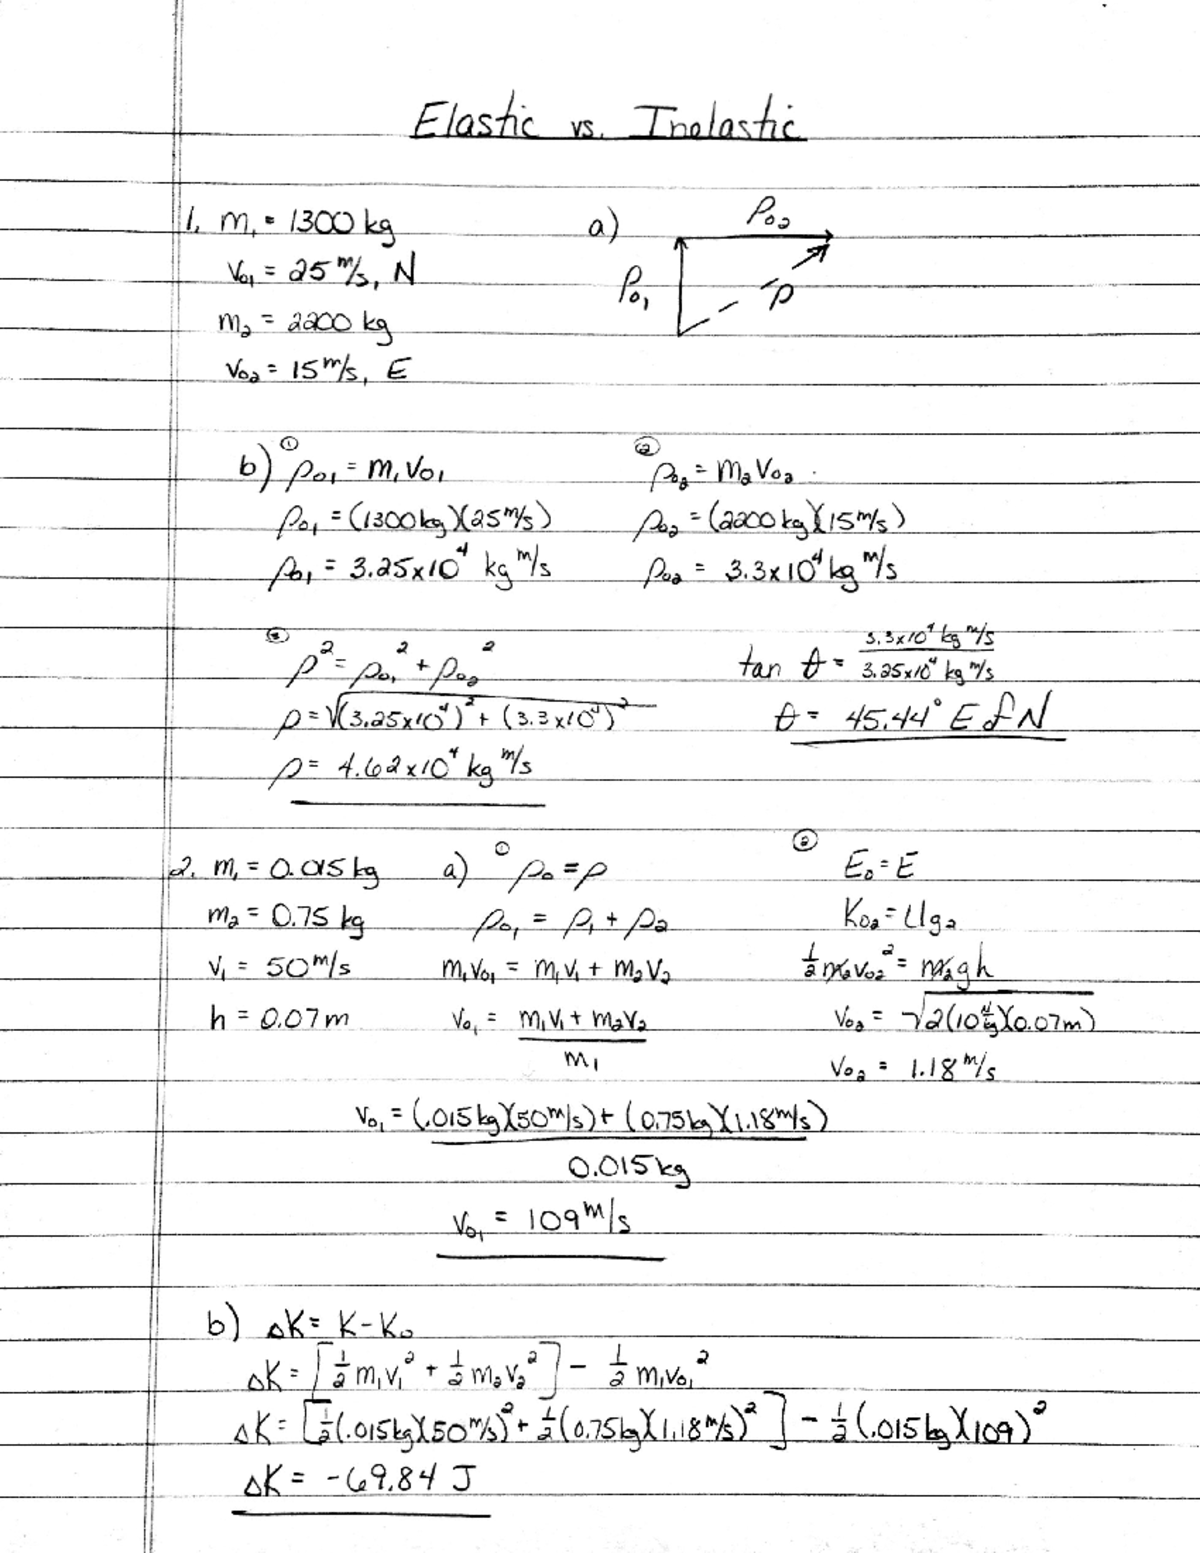 Elastic vs. Inelastic
1. m₁ = 1300 kg
v₀₁ = 25 m/s, N
m₂ = 2200 kg
v₀₂ = 15 m/s, E
a)
p₀₂
p₀₁
p
b) ① p₀₁ = m₁v₀₁
p₀₁ = (1300 kg)(25 m/s)
p₀₁ = 3.25x10⁴ kg m/s
② p₀₂ = m₂v₀₂
p₀₂ = (2200 kg)(15 m/s)
p₀₂ = 3.3x10⁴ kg m/s
③ p² = p₀₁² + p₀₂²
p = √(3.25x10⁴)² + (3.3x10⁴)²
p = 4.62x10⁴ kg m/s
tan θ = 3.3x10⁴ kg m/s / 3.25x10⁴ kg m/s
θ = 45.44° E of N
2. m₁ = 0.015 kg
m₂ = 0.75 kg
v₁ = 50 m/s
h = 0.07 m
a) ① p₀ = p
p₀₁ = p₁ + p₂
m₁v₀₁ = m₁v₁ + m₂v₂
v₀₁ = m₁v₁ + m₂v₂ / m₁
② E₀ = E
K₀₂ = Ug₂
½m₂v₀₂² = m₂gh
v₀₂ = √2(10 N/kg)(0.07m)
v₀₂ = 1.18 m/s
v₀₁ = (.015 kg)(50 m/s) + (0.75 kg)(1.18 m/s) / 0.015 kg
v₀₁ = 109 m/s
b) ΔK = K - K₀
ΔK = [½m₁v₁² + ½m₂v₂²] - ½m₁v₀₁²
ΔK = [½(.015 kg)(50 m/s)² + ½(0.75 kg)(1.18 m/s)²] - ½(.015 kg)(109)²
ΔK = -69.84 J